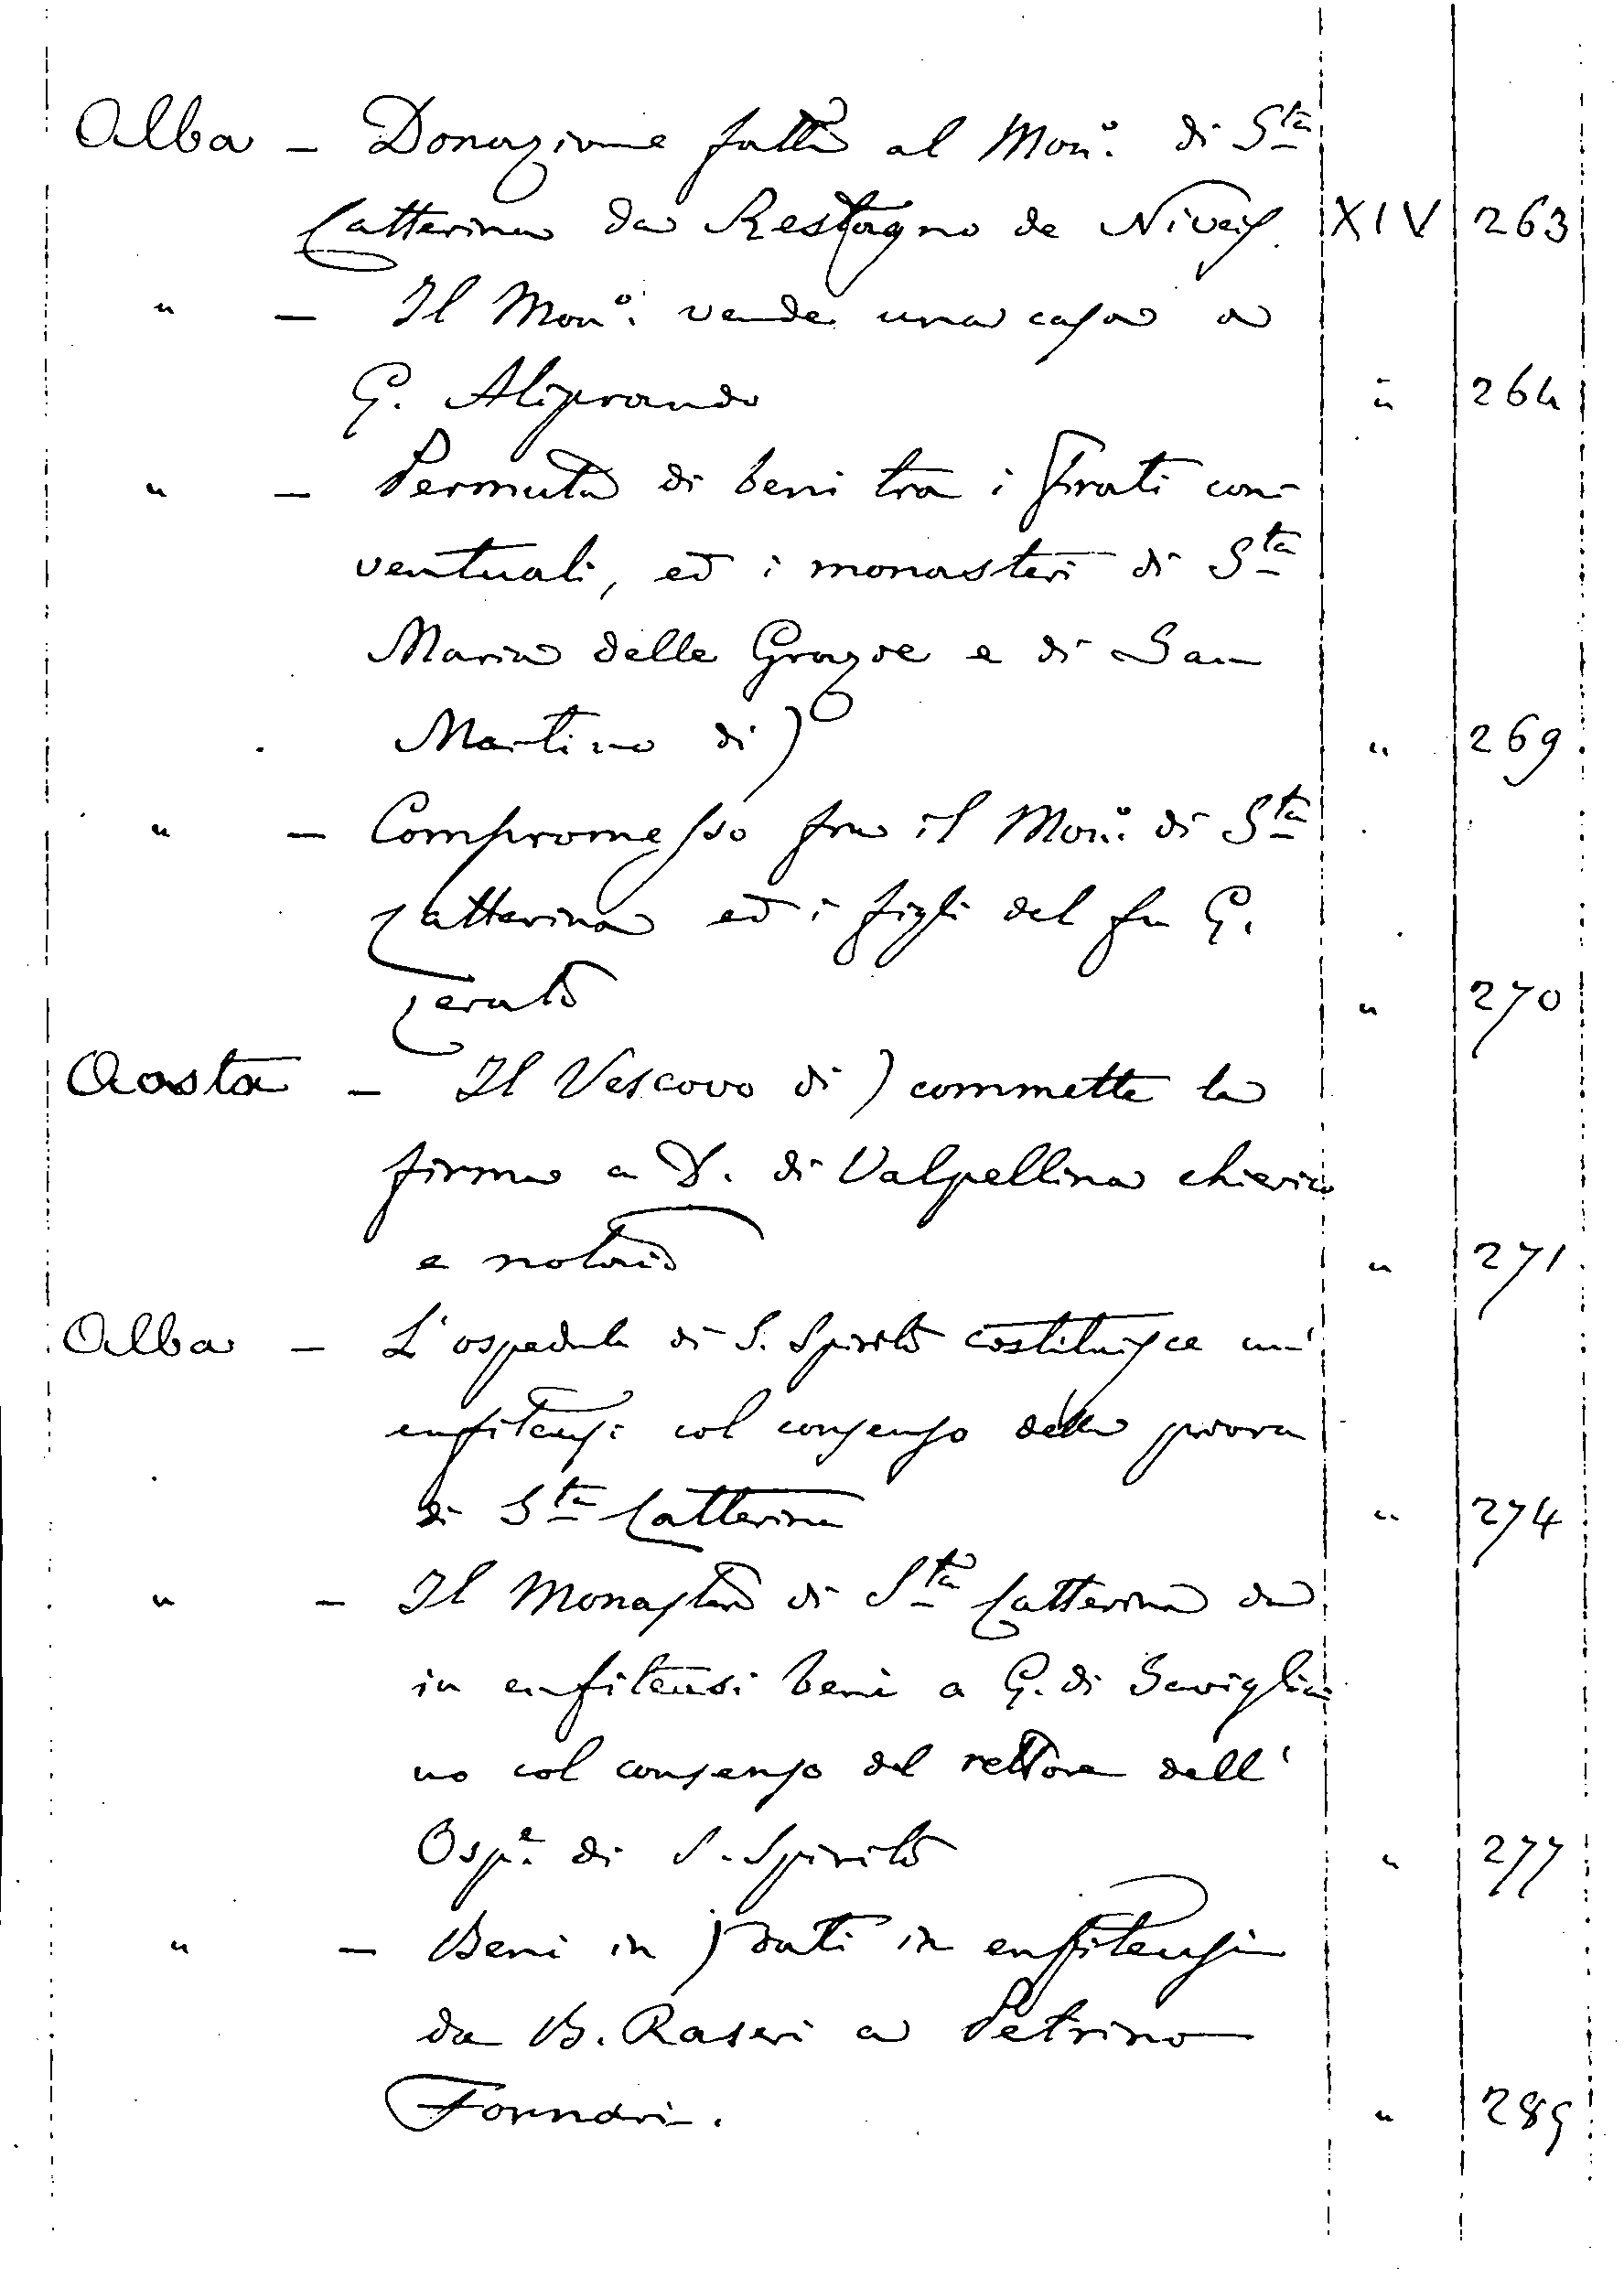 Alba - Donazione fatta al Mon.º di S.ta
Catterina da Restagno de Niveis. XIV 263
" - Il Mon.º vende una casa a
G. Aliprando " 264
" - Permuta di beni tra i frati con-
ventuali, ed i monasteri di S.ta
Maria delle Grazie e di San
Martino di ) " 269
" - Compromesso fra il Mon.º di S.ta
Catterina ed i figli del fu G.
Cerato " 270
Aosta - Il Vescovo di ) commette la
firma a D. di Valpellina chierico
e notaio " 271
Alba - L'ospedale di S. Spirito costituisce un'
enfiteusi col consenso della priora
di S.ta Catterina " 274
" - Il Monastero di S.ta Catterina da
in enfiteusi beni a G. di Saviglia-
no col consenso del rettore dell'
Osp.e di S. Spirito " 277
" - Beni in ) dati in enfiteusi
da B. Raseri a Petrino
Fornari. " 289